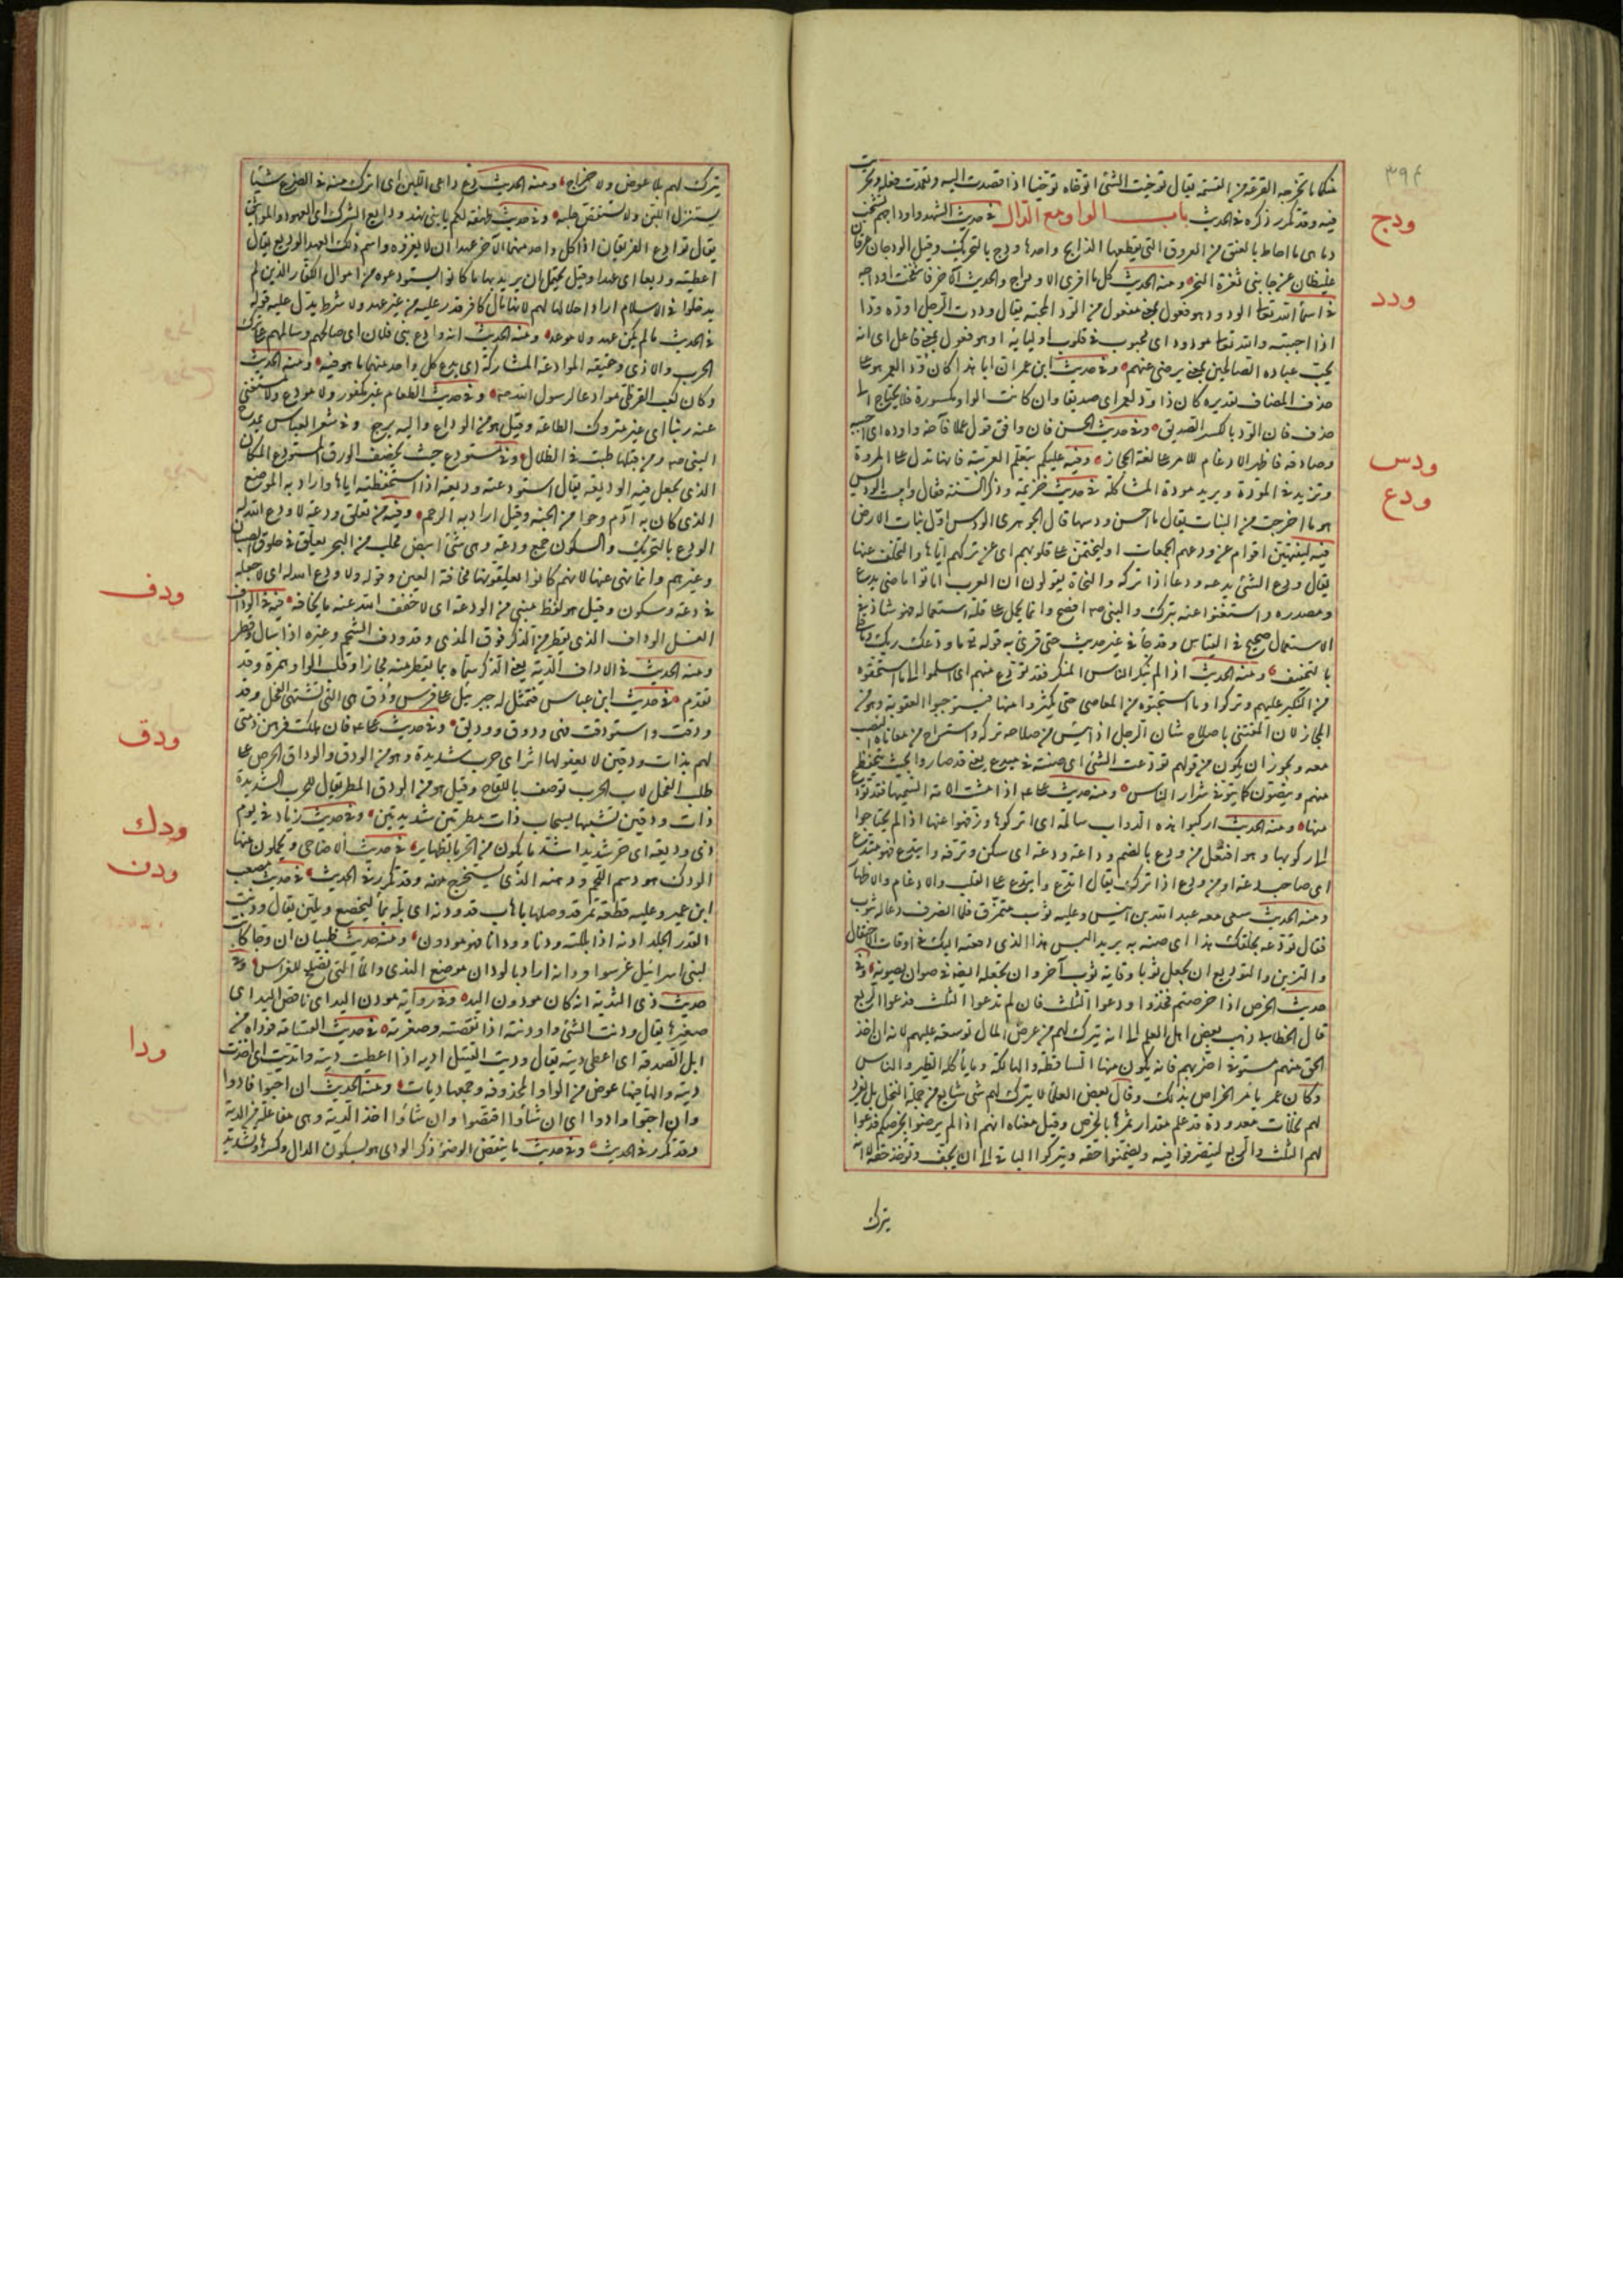 ٣٩٤
منكما ما تخرجه القرعة من القسمة يقال توخيت الشئ اتوخاه توخيا اذا قصدت اليه وتعمدت فعله وتحريت
فيه وقد تكرر ذكره في الحديث باب الواو مع الدال في حديث الشهداء اوداجهم تشخب
دما هى ما احاط بالعنق من العروق التى يقطعها الذابح واحدها ودج بالتحريك وقيل الودجان عرقان
غليظان عن جانبى ثغرة النحر ومنه الحديث كل ما افرى الاوداج والحديث الآخر فانتخت اوداجه
في اسماء الله تعالى الودود هو فعول بمعنى مفعول من الود المحبة يقال وددت الرجل اوده ودا
اذا احببته والله تعالى مودود اى محبوب في قلوب اوليائه او هو فعول بمعنى فاعل اى انه
يحب عباده الصالحين بمعنى يرضى عنهم وفي حديث ابن عمر ان ابا هذا كان ودا لعمر هو على
حذف المضاف تقديره كان ذا ود لعمر اى صديقا وان كانت الواو مكسورة فلا يحتاج الى
حذف فان الود بالكسر الصديق وفي حديث الحسن فان وافق قول عملا فآخه واودده اى احببه
وصادقه فاظهر الادغام للامر على لغة الحجاز وفيه عليكم بتعلم العربية فانها تدل على المروة
وتزيد في المودة ويريد مودة المشاكلة في حديث خزيمة وذكر السنة فقال وايبست الوديس
هو ما اخرجت من النبات يقال ما احسن ودسها قال الجوهرى الودس اول نبات الارض
فيه لينتهين اقوام عن ودعهم الجمعات او ليختمن على قلوبهم اى عن تركهم اياها والتخلف عنها
يقال ودع الشئ يدعه ودعا اذا تركه والنحاة يقولون ان العرب اماتوا ماضى يدع
ومصدره واستغنوا عنه بترك والنبى صم افصح وانما يحمل على قلة استعماله فهو شاذ في
الاستعمال صحيح في القياس وقد جاء في غير حديث حتى قرئ به قوله تع ما ودعك ربك وما قلى
بالتخفيف ومنه الحديث اذا لم ينكر الناس المنكر فقد تودع منهم اى اسلموا الى ما استحقوه
من النكير عليهم وتركوا وما استحبوه من المعاصى حتى يكثروا منها فيستوجبوا العقوبة وهو من
المجاز لان المعتنى باصلاح شان الرجل اذا يئس من صلاحه تركه واستراح من معاناة النصب
معه ويجوز ان يكون من قولهم تودعت الشئ اى صنته في ميدع يعنى قد صاروا بحيث يتحفظ
منهم ويتصون كما يتوقى شرار الناس ومنه حديث على عم اذا مشت الامة السميها فقد تودع
منها ومنه الحديث اركبوا هذه الدواب سالمة اى اتركوها ورفهوا عنها اذا لم يحتاجوا
الى ركوبها وهو افتعل من ودع بالضم وداعة ودعة اى سكن وترفه وايتدع فهو متدع
اى صاحب دعة او من ودع اذا ترك يقال اتدع وايتدع على القلب والادغام والاظهار
ومنه الحديث سعى معه عبد الله بن انيس وعليه ثوب متمزق فلما انصرف دعا له بثوب
فقال تودعه بخلقك هذا اى صنه به يريد البس هذا الذى دفعته اليك في اوقات الاحتفال
والتزين والتوديع ان يجعل ثوبا وقاية ثوب آخر وان يجعله ايضا في صوان يصونه وفي
حديث الخرص اذا خرصتم فخذوا ودعوا الثلث فان لم تدعوا الثلث فدعوا الربع
قال الخطابى ذهب بعض اهل العلم الى انه يترك لهم من عرض المال توسعة عليهم لانه ان اخذ
الحق منهم مستوفى اضر بهم فانه يكون منها الساقطة والهالكة وما ياكله الطير والناس
وكان عمر يأمر الخراص بذلك وقال بعض العلماء لا يترك لهم شئ شايع من جملة النخل بل يفرد
لهم نخلات معدودة قد علم مقدار ثمرها بالخرص وقيل معناه انهم اذا لم يرضوا بخرصكم فدعوا
لهم الثلث والربع ليتصرفوا فيه ويضمنوا حقه ويتركوا الباقى الى ان يجف ويؤخذ حقه لا انه
يترك
ودج
ودد
ودس
ودع
يترك لهم بلا عوض ولا خراج ومنه الحديث دع داعى اللبن اى اترك منه في الضرع شيئا
يستنزل اللبن ولا تستقص حلبه وفي حديث طهفة لكم يا بنى نهد ودايع الشرك اى العهود والمواثيق
يقال توادع الفريقان اذا كل واحد منهما الآخر عهدا ان لا يغزوه واسم ذلك العهد الوديع يقال
اعطيته وديعا اى عهدا وقيل يحتمل ان يريد بها ما كانوا استودعوه من اموال الكفار الذين لم
يدخلوا في الاسلام اراد احلالها لهم لانها مال كافر قدر عليه من غير عهد ولا شرط يدل عليه قوله
في الحديث ما لم يكن عهد ولا موعد ومنه الحديث انه وادع بنى فلان اى صالحهم وسالمهم على ترك
الحرب والاذى وحقيقة الموادعة المتاركة اى يدع كل واحد منهما ما هو فيه ومنه الحديث
وكان كعب القرظى موادعا لرسول الله صم وفي حديث الطعام غير مكفور ولا مودع ولا مستغنى
عنه ربنا اى غير متروك الطاعة وقيل هو من الوداع واليه يرجع وفي شعر العباس يمدح
النبى صم ومن قبلها طبت في الظلال وفي مستودع حيث يخصف الورق المستودع المكان
الذى يجعل فيه الوديعة يقال استودعته وديعة اذا استحفظته اياها واراد به الموضع
الذى كان به آدم وحوا من الجنة وقيل اراد به الرحم وفيه من تعلق ودعة لا ودع الله له
الودع بالتحريك والسكون جمع ودعة وهى شئ ابيض يجلب من البحر يعلق في حلوق الصبيان
وغيرهم وانما نهى عنها لانهم كانوا يعلقونها مخافة العين وقوله لا ودع الله له اى لا جعله
في دعة وسكون وقيل هو لفظ مبنى من الودعة اى لا خفف الله عنه ما يخافه فيه في الوداف
الغسل الوداف الذى يقطر من الذكر فوق المذى وقد ودف الشحم وغيره اذا سال وقطر
ومنه الحديث في الاداف الدية يعنى الذكر سماه بما يقطر منه مجازا وقلب الواو همزة وقد
تقدم في حديث ابن عباس فتمثل له جبريل على فرس ودق هى التى تشتهى الفحل وقد
ودقت واستودقت فهى ودوق ووديق وفي حديث على عم فان هلكت فرهن ذمتى
لهم بذات ودقين لا يعفو لها اثر اى حرب شديدة وهو من الودق والوداق الحرص على
طلب الفحل لان الحرب توصف باللقاح وقيل هو من الودق المطر يقال للحرب الشديدة
ذات ودقين تشبيها بسحاب ذات مطرتين شديدتين وفي حديث زياد في يوم
ذى وديقة اى حر شديد اشد ما يكون من الحر بالظهاير في حديث الاضاحى ويحملون منها
الودك هو دسم اللحم ودهنه الذى يستخرج منه وقد تكرر في الحديث في حديث مصعب
ابن عمير وعليه قطعة نمرة قد وصلها باهاب قد ودنه اى بله بماء ليخضع ويلين يقال ودنت
القد والجلد ادنه اذا بللته ودنا وودانا فهو مودون ومنه حديث ظبيان ان وجا كانت
لبنى اسرائيل غرسوا ودانه اراد بالودان موضع الندى والماء التى تصلح للغراس وفي
حديث ذى الثدية انه كان مودون اليد وفي رواية مودن اليد اى ناقص اليد اى
صغيرها يقال ودنت الشئ واودنته اذا نقصته وصغرته في حديث القسامة فوداه من
ابل الصدقة اى اعطى ديته يقال وديت القتيل اديه اذا اعطيت ديته واتديت اى اخذت
ديته والهاء فيها عوض من الواو المحذوفة وجمعها ديات ومنه الحديث ان احبوا قادوا
وان احبوا وادوا اى ان شاؤا اقتصوا وان شاؤا اخذ الدية وهى مفاعلة من الدية
وقد تكرر في الحديث وفي حديث ما ينقض الوضوء ذكر الودى هو بسكون الدال وكسرها وتشديد
ودف
ودق
ودك
ودن
ودا